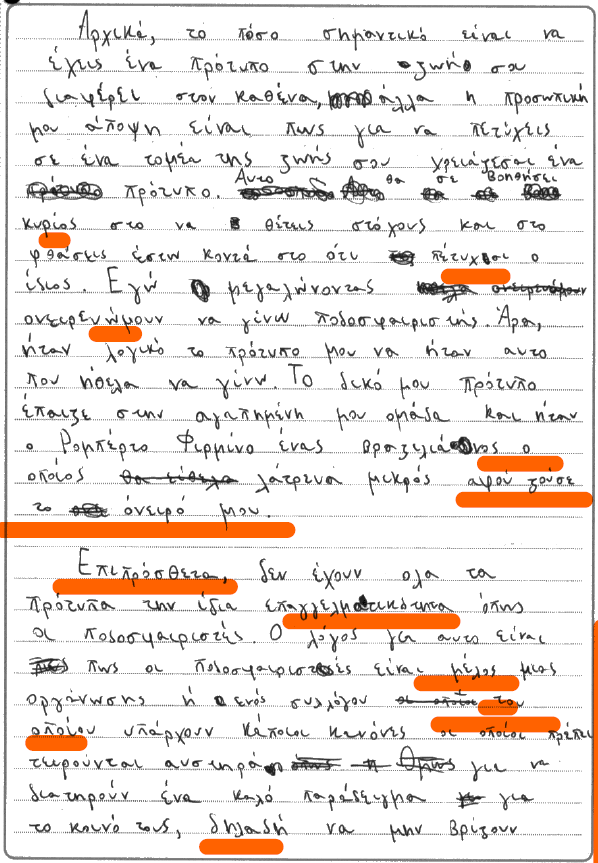 Αρχικά, το πόσο σημαντικό είναι να
έχεις ένα πρότυπο στην ζωή σου
διαφέρει στον καθένα, άλλα η προσωπική
μου άποψη είναι πως για να πετύχεις
σε ένα τομέα της ζωής σου χρειάζεσαι ένα
πρότυπο. Αυτο θα σε βοηθήσει
κυρίος στο να θέτεις στόχους και στο
φθάσεις έστω κοντά στο ότι πέτυχε ο
ίδιος. Εγώ μεγαλώνοντας
ονειρενώμουν να γίνω ποδοσφαιριστής. Άρα,
ήταν λογικό το πρότυπο μου να ήταν αυτο
που ήθελα να γίνω. Το δικό μου πρότυπο
έπαιζε στην αγαπημένη μου ομάδα και ήταν
ο Ρομπέρτο Φιρμίνο ένας βραζιλιάνος ο
οποίος λάτρευα μικρός αφού ζούσε
το όνειρό μου.
Επιπρόσθετα, δεν έχουν ολα τα
πρότυπα την ίδια επαγγελματικότητα όπως
οι ποδοσφαιριστές. Ο λόγος για αυτο είναι
πως οι ποδοσφαιριστές είναι μέλος μιας
οργάνωσης ή ενός συλλόγου του
οποίου υπάρχουν κάποιοι κανόνες οι οποίοι πρέπει
τειρούνται αυστηρά για να
διατηρούν ένα καλό παράδειγμα για
το κοινό τους, δηλαδή να μην βρίζουν